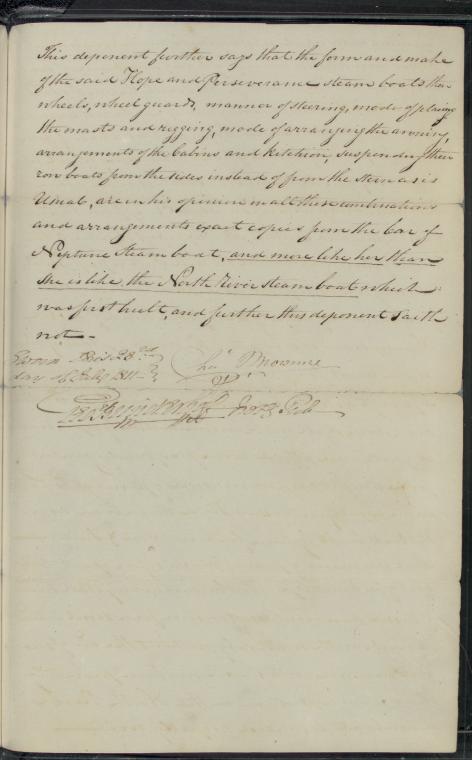 This deponent further says that the form and make
of the said Hope and Perseverance steam boats their
wheels, wheel guards, manner of steering, mode of placing
the masts and rigging, mode of arranging the awning,
arrangements of the Cabins and Kitchen, suspending their
row boats from the sides instead of from the stern as is
Usual, are in his opinion in all these combinations
and arrangements exact copies from the Car of
Neptune Steam boat, and more like her than
she is like the North River steam boat which
was first built, and further this deponent saith
not—
Sworn this 23rd
day of July 1811
Chas Browne
Notary Pub